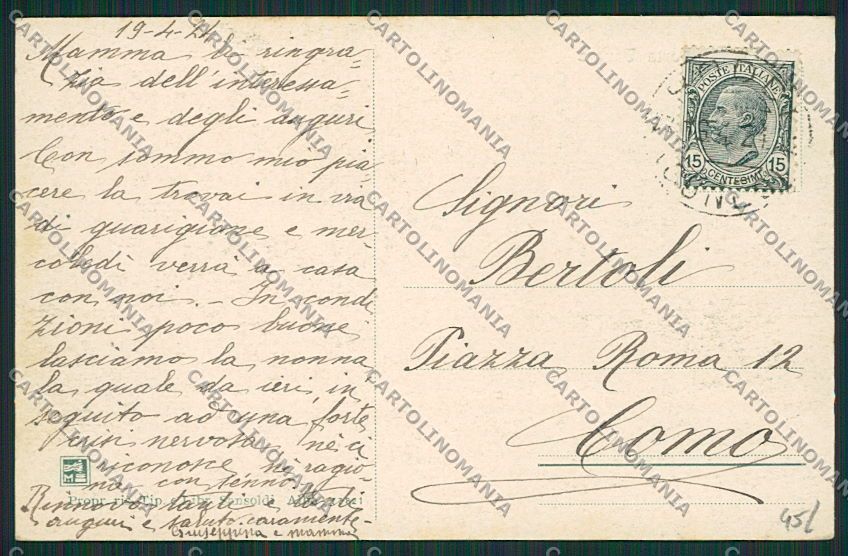 19-4-21
Mamma La ringra-
zia dell'interessa-
mento e degli auguri
Con sommo mio pia-
cere la trovai in via
di guarigione e mer-
coledì verrà a casa
con noi. - In condi
zioni poco buone
lasciamo la nonna
la quale da ieri, in
seguito ad una forte
crisi nervosa nè ci
riconosce nè ragio-
na con senno.
Propr. ris. Tip. e Libr. Sensoldi
Rinnovo e tanti
auguri e saluto caramente-
Giuseppina e mamma
POSTE ITALIANE
15 CENTESIMI 15
Signori
Bertoli
Piazza Roma 12
Como
45/
CARTOLINOMANIA